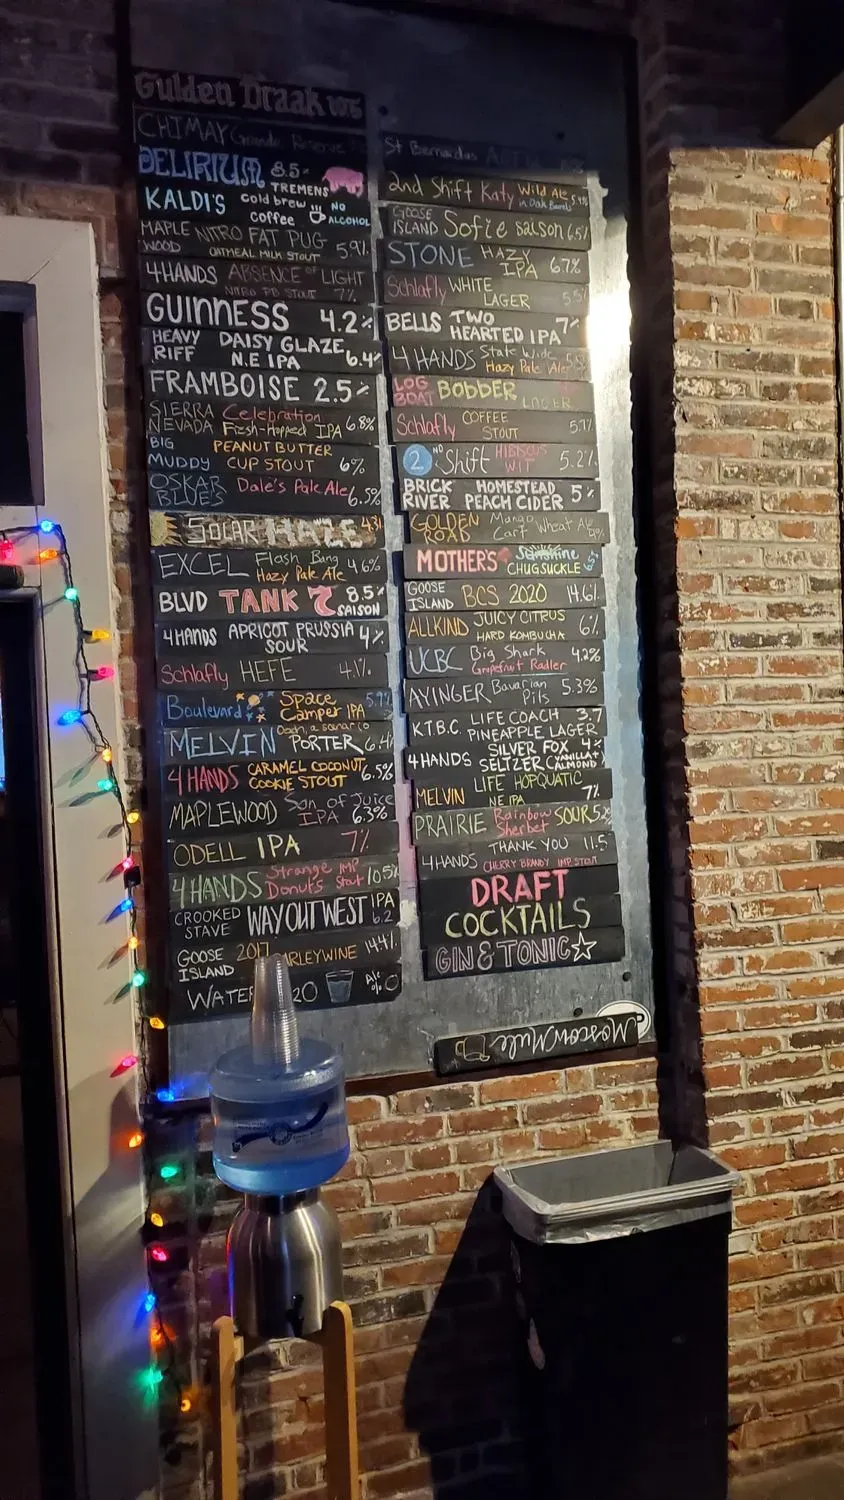 Gulden Draak
CHIMAY Grande Reserve
DELIRIUM 8.5%
TREMENS
KALDI'S cold brew coffee NO ALCOHOL
MAPLE WOOD NITRO FAT PUG 5.9%
OATMEAL MILK STOUT
4HANDS ABSENCE OF LIGHT
NITRO PB STOUT 7%
GUINNESS 4.2%
HEAVY RIFF DAISY GLAZE N.E IPA 6.4%
FRAMBOISE 2.5%
SIERRA NEVADA Celebration Fresh-Hopped IPA 6.8%
BIG MUDDY PEANUT BUTTER CUP STOUT 6%
OSKAR BLUE'S Dale's Pale Ale 6.5%
SOLAR HAZE
EXCEL Flash Bang Hazy Pale Ale 4.6%
BLVD TANK 7 8.5% SAISON
4HANDS APRICOT PRUSSIA SOUR 4%
Schlafly HEFE 4.1%
Boulevard Space Camper IPA
MELVIN PORTER
4 HANDS CARAMEL COCONUT COOKIE STOUT 6.5%
MAPLEWOOD Son of Juice IPA 6.3%
ODELL IPA 7%
4 HANDS Strange Donuts IMP Stout 10.5%
CROOKED STAVE WAY OUT WEST IPA 6.2
GOOSE ISLAND 2017 ARLEYWINE 14.4%
WATER 20 Alc % 0
St Bernardus
2nd Shift Katy Wild Ale in Oak Barrels
GOOSE ISLAND Sofie Saison 6.5%
STONE HAZY IPA 6.7%
Schlafly WHITE LAGER 5.5%
BELLS TWO HEARTED IPA 7%
4 HANDS State Wide Hazy Pale Ale
LOG BOAT BOBBER LAGER
Schlafly COFFEE STOUT 5.7%
2ND Shift HIBISCUS WIT 5.2%
BRICK RIVER HOMESTEAD PEACH CIDER 5%
GOLDEN ROAD Mango Cart Wheat Ale
MOTHERS Sunshine CHUGSUCKLE
GOOSE ISLAND BCS 2020 14.6%
ALLKIND JUICY CITRUS HARD KOMBUCHA 6%
UCBC Big Shark Grapefruit Radler 4.2%
AYINGER Bavarian Pils 5.3%
K.T.B.C. LIFE COACH PINEAPPLE LAGER 3.7
4HANDS SILVER FOX SELTZER (VANILLA + ALMOND) 4%
MELVIN LIFE HOPQUATIC NE IPA 7%
PRAIRIE Rainbow Sherbet SOUR 5.2%
4HANDS THANK YOU 11.5
CHERRY BRANDY IMP STOUT
DRAFT
COCKTAILS
GIN & TONIC
Moscow Mule